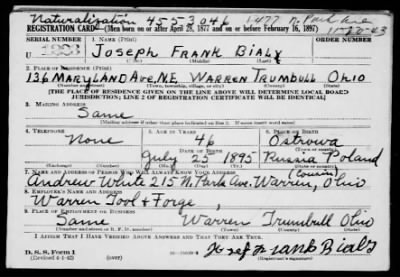 Naturalization 4553046 1477 N. Park Ave
REGISTRATION CARD—(Men born on or after April 28, 1877 and on or before February 16, 1897) 11-22-43
SERIAL NUMBER 1. NAME (Print)
U 1993 JOSEPH FRANK BIALY
2. PLACE OF RESIDENCE (Print)
136 MARYLAND AVE, N.E, WARREN TRUMBULL OHIO
[THE PLACE OF RESIDENCE GIVEN ON THE LINE ABOVE WILL DETERMINE LOCAL BOARD
JURISDICTION; LINE 2 OF REGISTRATION CERTIFICATE WILL BE IDENTICAL]
3. MAILING ADDRESS
Same
[Mailing address if other than place indicated on line 2. If same insert word same]
4. TELEPHONE 5. AGE IN YEARS 6. PLACE OF BIRTH
None 46 Ostrowa
DATE OF BIRTH
July 25 1895 Russia Poland
(Exchange) (Number) (Mo.) (Day) (Yr.) (State or country)
7. NAME AND ADDRESS OF PERSON WHO WILL ALWAYS KNOW YOUR ADDRESS (Cousin)
Andrew White 215 N. Park Ave. Warren, Ohio
8. EMPLOYER'S NAME AND ADDRESS
Warren Tool & Forge,
9. PLACE OF EMPLOYMENT OR BUSINESS
Same Warren Trumbull Ohio
(Number and street or R. F. D. number) (Town) (County) (State)
I AFFIRM THAT I HAVE VERIFIED ABOVE ANSWERS AND THAT THEY ARE TRUE.
D. S. S. Form 1
(Revised 4-1-42) Josef Frank Bialy